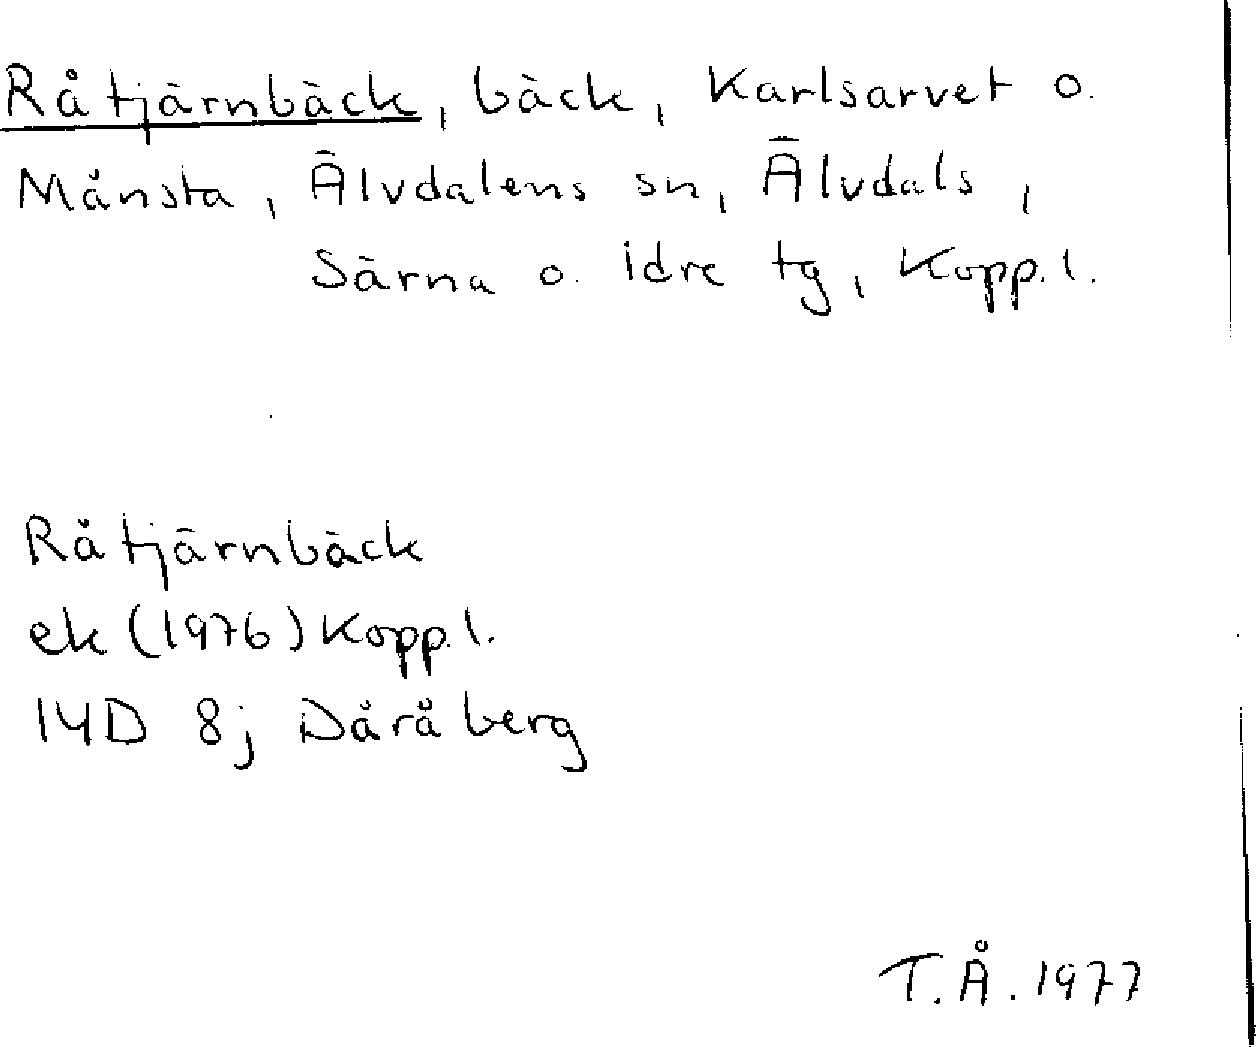 Råtjärnbäck, bäck, Karlsarvet o.
Månsta, Älvdalens sn, Älvdals,
Särna o. Idre tg, Kopp. l.
Råtjärnbäck
ek (1976) Kopp. l.
14D 8j Dåråberg
T.Å. 1977